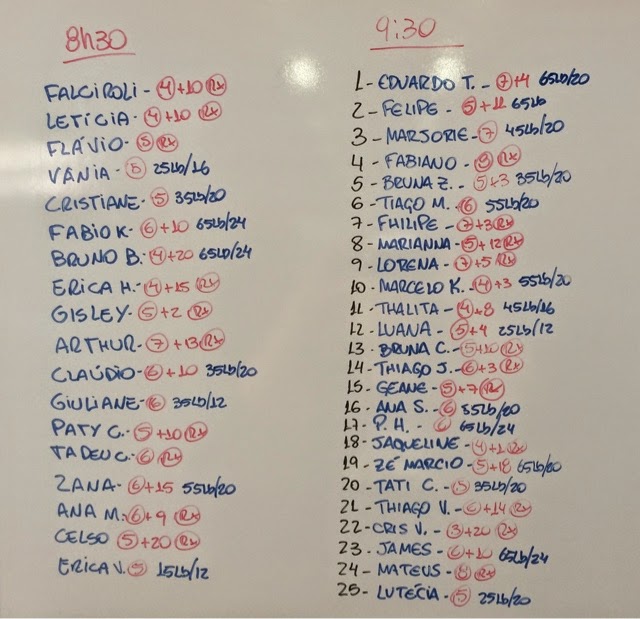 8h30
FALCIROLI - 4+10 Rx
LETÍCIA - 4+10 Rx
FLÁVIO - 5 Rx
VÂNIA - 5 25Lb/16
CRISTIANE - 5 35Lb/20
FABIO K - 6+10 65Lb/24
BRUNO B. - 4+20 65Lb/24
ERICA H. - 4+15 Rx
GISLEY - 5+2 Rx
ARTHUR - 7+13 Rx
CLAÚDIO - 6+10 35Lb/20
GIULIANE - 6 35Lb/12
PATY C. - 5+10 Rx
TADEU C. - 6 Rx
ZANA - 6+15 55Lb/20
ANA M. - 6+9 Rx
CELSO 5+20 Rx
ERICA V. 5 15Lb/12
9:30
1 - EDUARDO T. - 7+4 65Lb/20
2 - FELIPE - 5+11 65Lb
3 - MARJORIE - 7 45Lb/20
4 - FABIANO - 8 Rx
5 - BRUNA Z. - 5+3 35Lb/20
6 - TIAGO M. 6 55Lb/20
7 - FHILIPE - 7+3 Rx
8 - MARIANNA - 5+12 Rx
9 - LORENA - 7+5 Rx
10 - MARCELO K. - 4+3 55Lb/20
11 - THALITA - 4+8 45Lb/16
12 - LUANA - 5+4 25Lb/12
13 - BRUNA C. - 5+10 Rx
14 - THIAGO J. - 6+3 Rx
15 - GEANE - 5+7 Rx
16 - ANA S. - 6 55Lb/20
17 - P. H. - 6 65Lb/24
18 - JAQUELINE - 4+1 Rx
19 - ZÉ MARCIO - 5+18
20 - TATI C. - 5 35Lb/20
21 - THIAGO V. - 6+14 Rx
22 - CRIS V. - 3+20 Rx
23 - JAMES - 6+10 65Lb/24
24 - MATEUS - 8 Rx
25 - LUTÉCIA - 5 25Lb/20